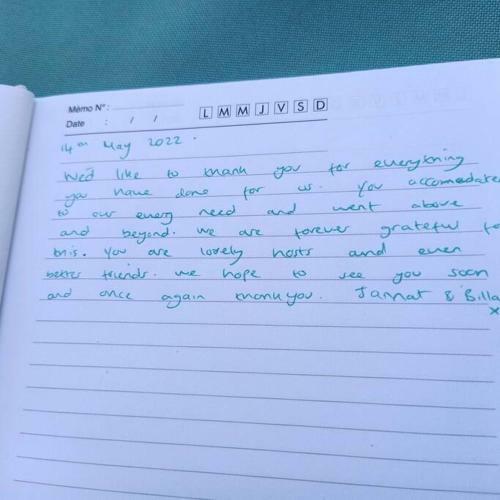 Mémo N° :
L M M J V S D
Date : / /
14th May 2022.
We'd like to thank you for everything
you have done for us. You accomodated
to our every need and went above
and beyond. We are forever grateful for
this. You are lovely hosts and even
better friends. We hope to see you soon
and once again thankyou. Jannat & Billa
x